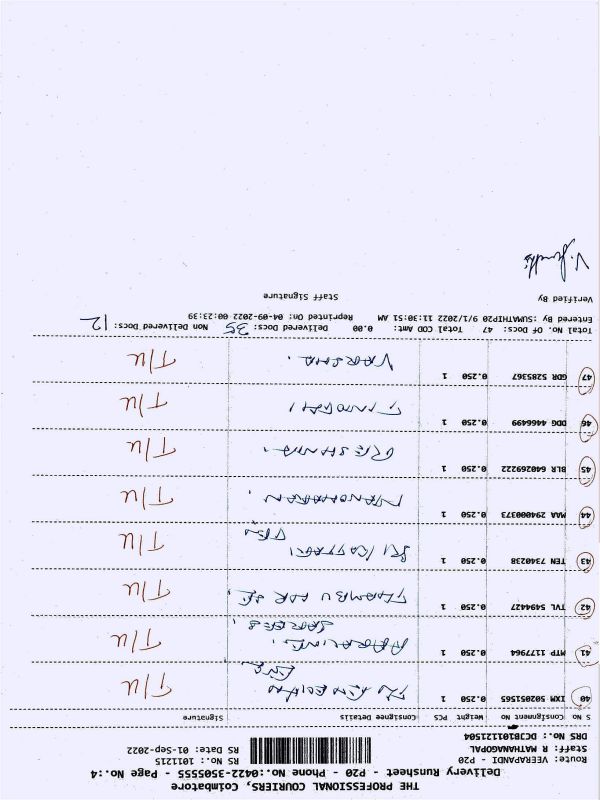 THE PROFESSIONAL COURIERS, Coimbatore
Delivery Runsheet - P20 - Phone No.:0422-3505555 - Page No.:4
Route: VEERAPANDI - P20 RS No.: 1011215
Staff: R MATHANAGOPAL RS Date: 01-Sep-2022
DRS No.: DCJB101121504
S No Consignment No Weight PCS Consignee Details Signature
40 IXM 502051565 0.250 1 T/U
41 MTP 1177964 0.250 1 T/U
42 TVL 5494427 0.250 1 T/U
43 TEN 7340238 0.250 1 T/U
44 MAA 294000373 0.250 1 MANOHARAN T/U
45 BLR 640269222 0.250 1 T/U
46 DDG 4466499 0.250 1 T/U
47 GDR 5285367 0.250 1 T/U
Total No. Of Docs: 47 Total COD Amt: 0.00 Delivered Docs: 35 Non Delivered Docs: 12
Entered By :SUMATHIP20 9/1/2022 11:30:51 AM Reprinted On: 04-09-2022 00:23:39
Verified By Staff Signature